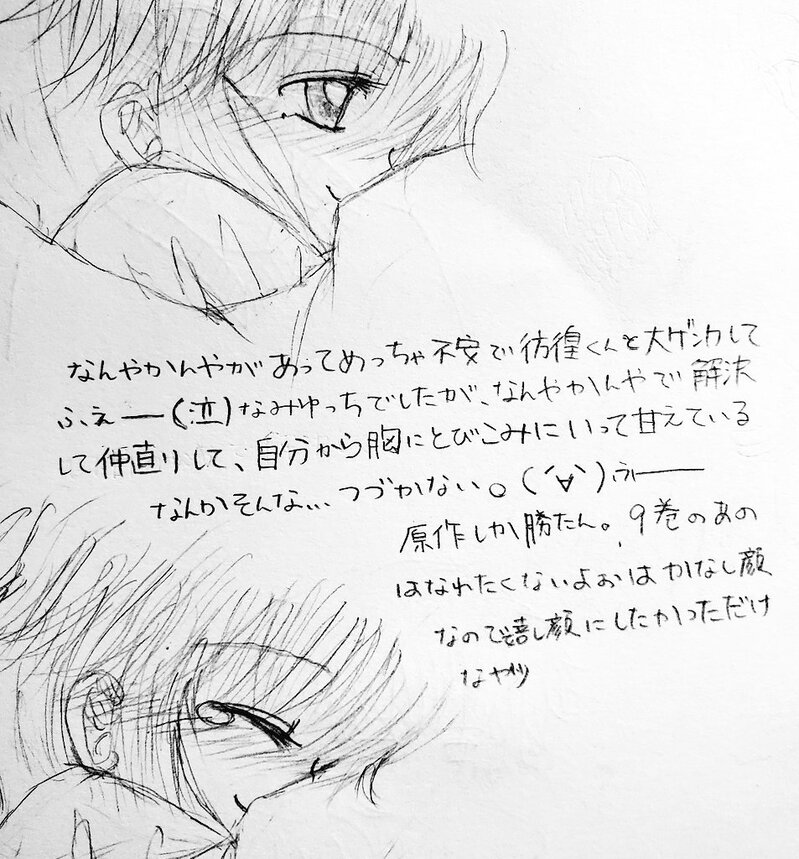 なんやかんやがあってめっちゃ不安で彷徨くんと大ゲンカして
ふぇー(泣)なみゆっちでしたが、なんやかんやで解決
して仲直りして、自分から胸にとびこみにいって甘えている
なんかそんな... つづかない。(´∀`)うぃー
原作しか勝たん。9巻のあの
はなれたくないよぉはかなし顔
なので嬉し顔にしたかっただけ
なやつ